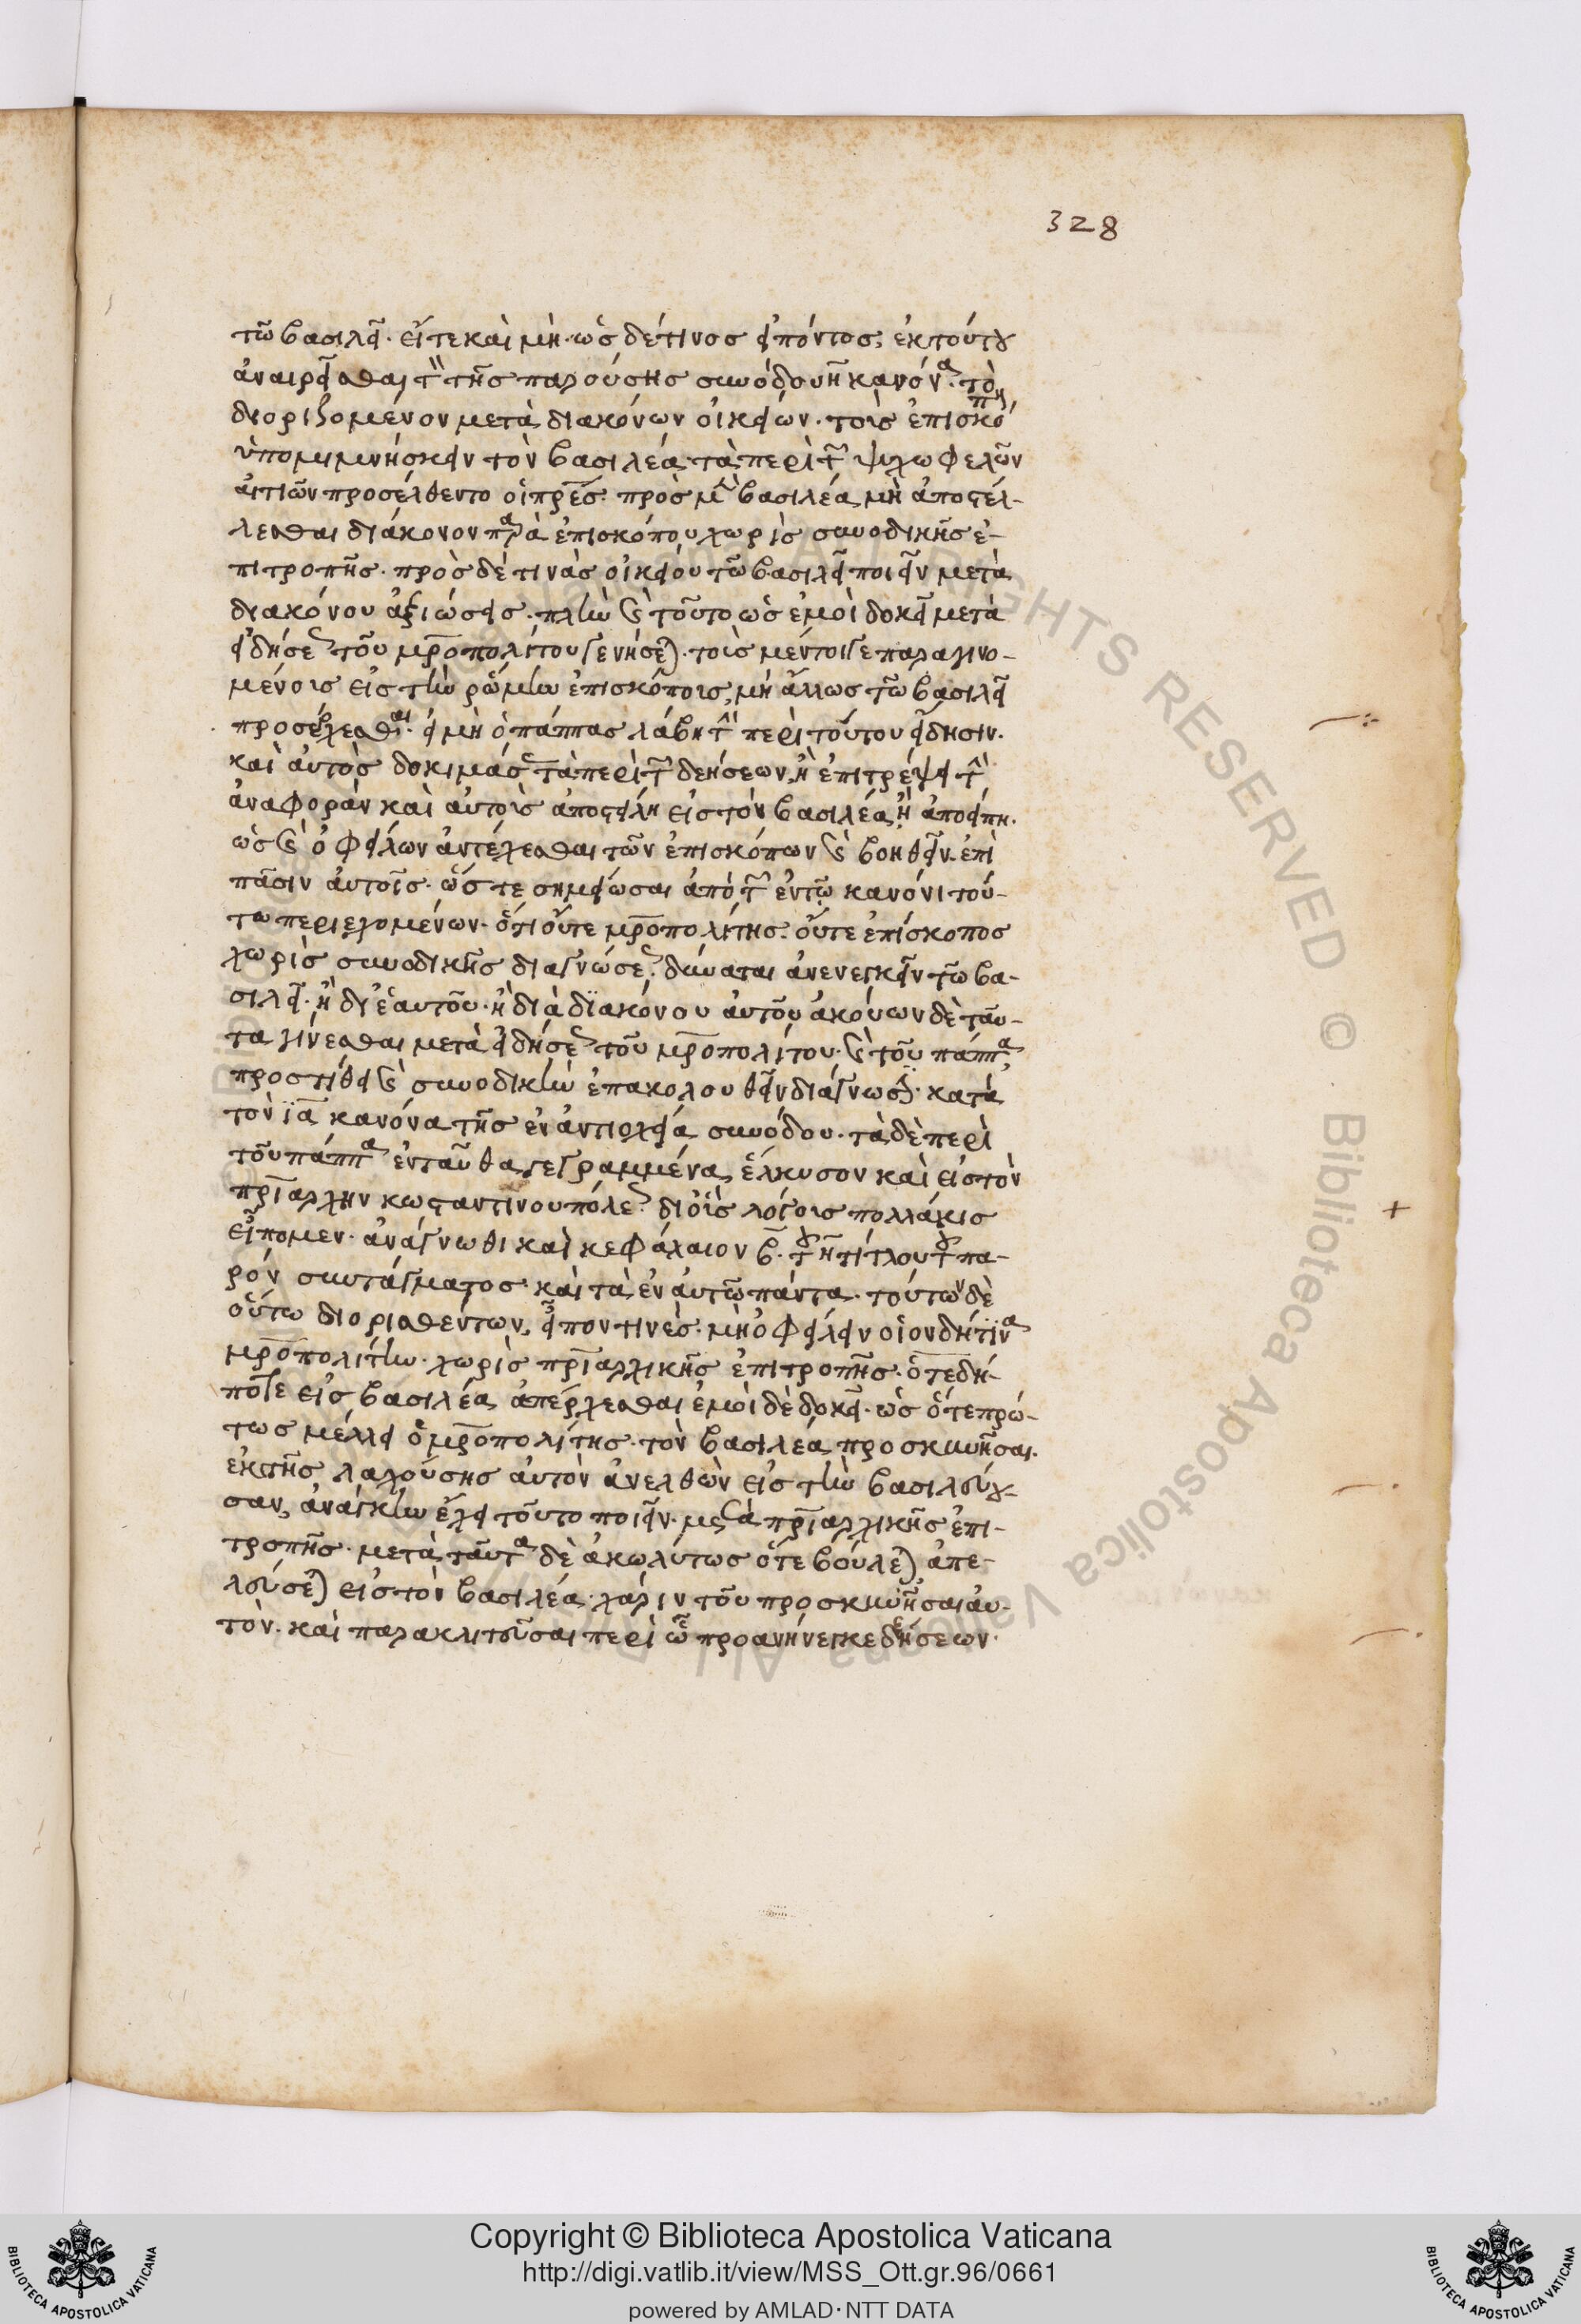 328
τῶ βασιλεῖ· εἴτε καὶ μὴ· ὡς δέ τινος εἰπόντος, ἐκ τούτου
ἀναιρεῖσθαι τ(ὸν) τῆς παρούσης συνόδου η̄ κανόνα· τὸν
διοριζόμενον μετὰ διακόνων οἰκείων· τοῖς ἐπισκόποις
ὑπομιμνήσκειν τὸν βασιλέα, τὰ περὶ τ(ῶν) ψυχωφελῶν
αἰτιῶν προσέλθεντο οἱ πρέσ· πρὸς μ(ὲν) βασιλέα μὴ ἀποστέλ-
λεσθαι διάκονον παρὰ ἐπισκόπου χωρὶς συνοδικῆς ἐ-
πιτροπῆς· πρὸς δέ τινας οἰκείου τῶ βασιλεῖ ποιεῖν μετὰ
διακόνου ἀξιώσεις· πλὴν καὶ τοῦτο ὡς ἐμοὶ δοκεῖ μετὰ
εἰδήσε(ως) τοῦ μροπολίτου γενήσε(ται)· τοῖς μέντοιγε παραγινο-
μένοις εἰς τὴν ῥώμην ἐπισκόποις, μὴ ἄλλως τῶ βασιλεῖ
προσέρχεσθαι· εἰ μὴ ὁ πάππας λάβη τ(ὴν) περὶ τούτου εἴδησιν·
καὶ αὐτὸς δοκιμάσ(ας) τὰ περὶ τ(ῶν) δεήσεων, ἢ ἐπιτρέψει τ(ὴν)
ἀναφορὰν καὶ αὐτοῖς ἀποστείλη εἰς τὸν βασιλέα, ἢ ἀποείπη·
ὡς καὶ ὀφείλων ἀντέχεσθαι τῶν ἐπισκόπων καὶ βοηθεῖν ἐπὶ
πᾶσιν αὐτοῖς· ὥστε σημείωσαι ἀπὸ τ(ῶν) ἐν τῶ κανόνι τού-
τω περιεχομένων· ὅτι οὔτε μροπολίτης· οὔτε ἐπίσκοπος
χωρὶς συνοδικῆς διαγνώσε(ως)· δύναται ἀνενεγκεῖν τῶ βα-
σιλεῖ· ἢ δι' ἑαυτοῦ· ἢ διὰ διακόνου αὐτοῦ ἀκούων δὲ ταῦ-
τα γίνεσθαι μετὰ εἰδήσε(ως) τοῦ μροπολίτου· καὶ τοῦ πάππα
προστίθει καὶ συνοδικὴν ἐπακολουθεῖν διάγνωσιν· κατὰ
τὸν ιᾱ κανόνα τῆς ἐν ἀντιοχεία συνόδου· τὰ δὲ περὶ
τοῦ πάππα ἐνταῦθα γεγραμμένα, ἕλκυσον καὶ εἰς τὸν
πριάρχην κωσταντινουπόλε(ως)· δι' οἷς λόγοις πολλάκις
εἴπομεν· ἀνάγνωθι καὶ κεφάλαιον β̄· τοῦ η̄ τίτλου τοῦ πα-
ρόν συντάγματος· καὶ τὰ ἐν αὐτῶ πάντα· τούτων δὲ
οὕτω διορισθέντων, εἶπον τινές· μὴ ὀφείλειν οἱονδήτινα
μροπολίτην· χωρὶς πριαρχικῆς ἐπιτροπῆς· ὁτεδή-
ποτε εἰς βασιλέα ἀπέρχεσθαι ἐμοὶ δὲ δοκεῖ· ὡς ὅτε πρώ-
τως μέλλει ὁ μροπολίτης· τὸν βασιλέα προσκυνῆσαι·
ἐκ τῆς λαχούσης αὐτὸν ἀνελθὼν εἰς τὴν βασιλεύου-
σαν, ἀνάγκην ἔχει τοῦτο ποιεῖν· μετὰ πριαρχικῆς ἐπι-
τροπῆς· μετὰ ταῦτα δὲ ἀκωλύτως ὅτε βούλε(ται) ἀπε-
λεύσε(ται) εἰς τὸν βασιλέα· χάριν τοῦ προσκυνῆσαι αὐ-
τὸν· καὶ παρακλητεῦσαι περὶ ὧν προανήνεγκε δεήσεων·
Copyright © Biblioteca Apostolica Vaticana
http://digi.vatlib.it/view/MSS_Ott.gr.96/0661
powered by AMLAD·NTT DATA